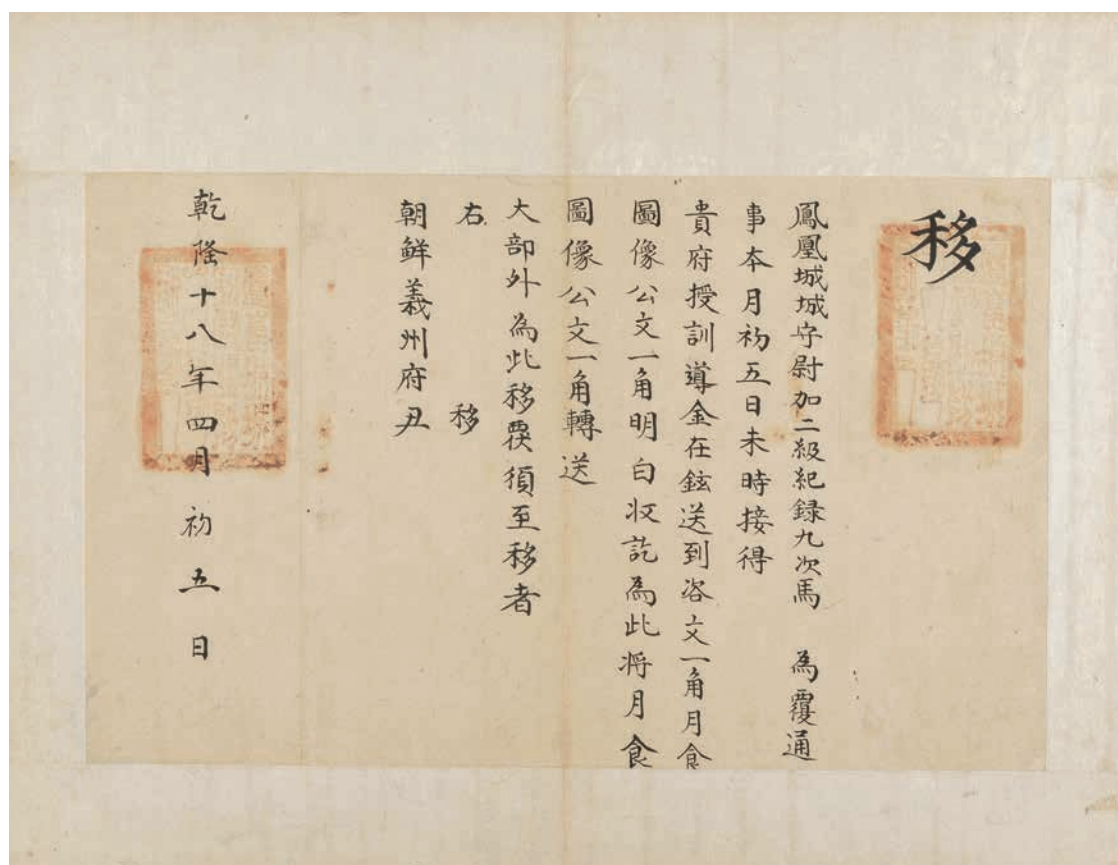 移
鳳凰城城守尉加二級紀錄九次馬 為覆通
事本月初五日未時接得
貴府授訓導金在鉉送到咨文一角月食
圖像公文一角明白收訖為此將月食
圖像公文一角轉送
大部外為此移覆須至移者
右 移
朝鮮義州府尹
乾隆十八年四月初五日